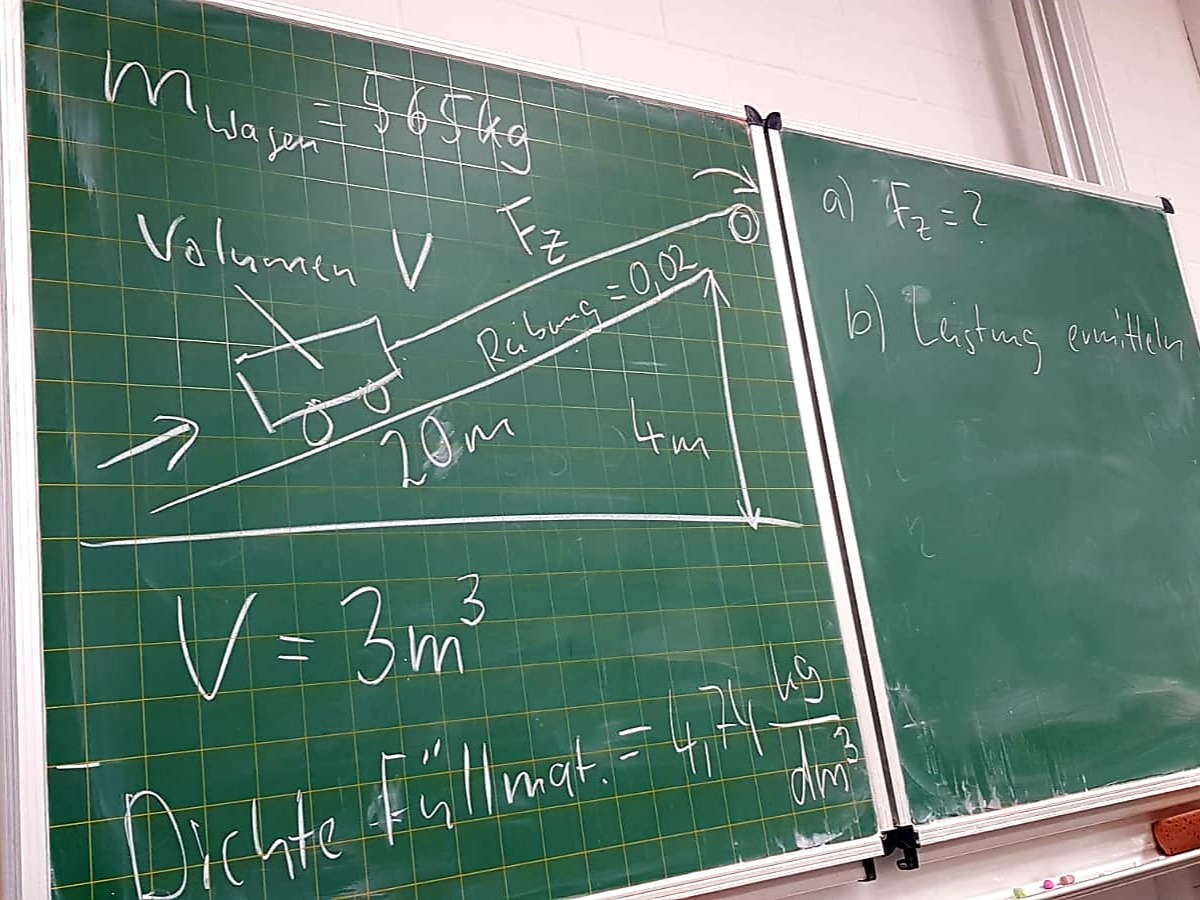 m Wagen = 565kg
Volumen V
Fz
Reibung = 0,02
20m
4m
V = 3m³
Dichte Füllmat. = 4,74 kg/dm³
a) Fz = ?
b) Leistung ermitteln